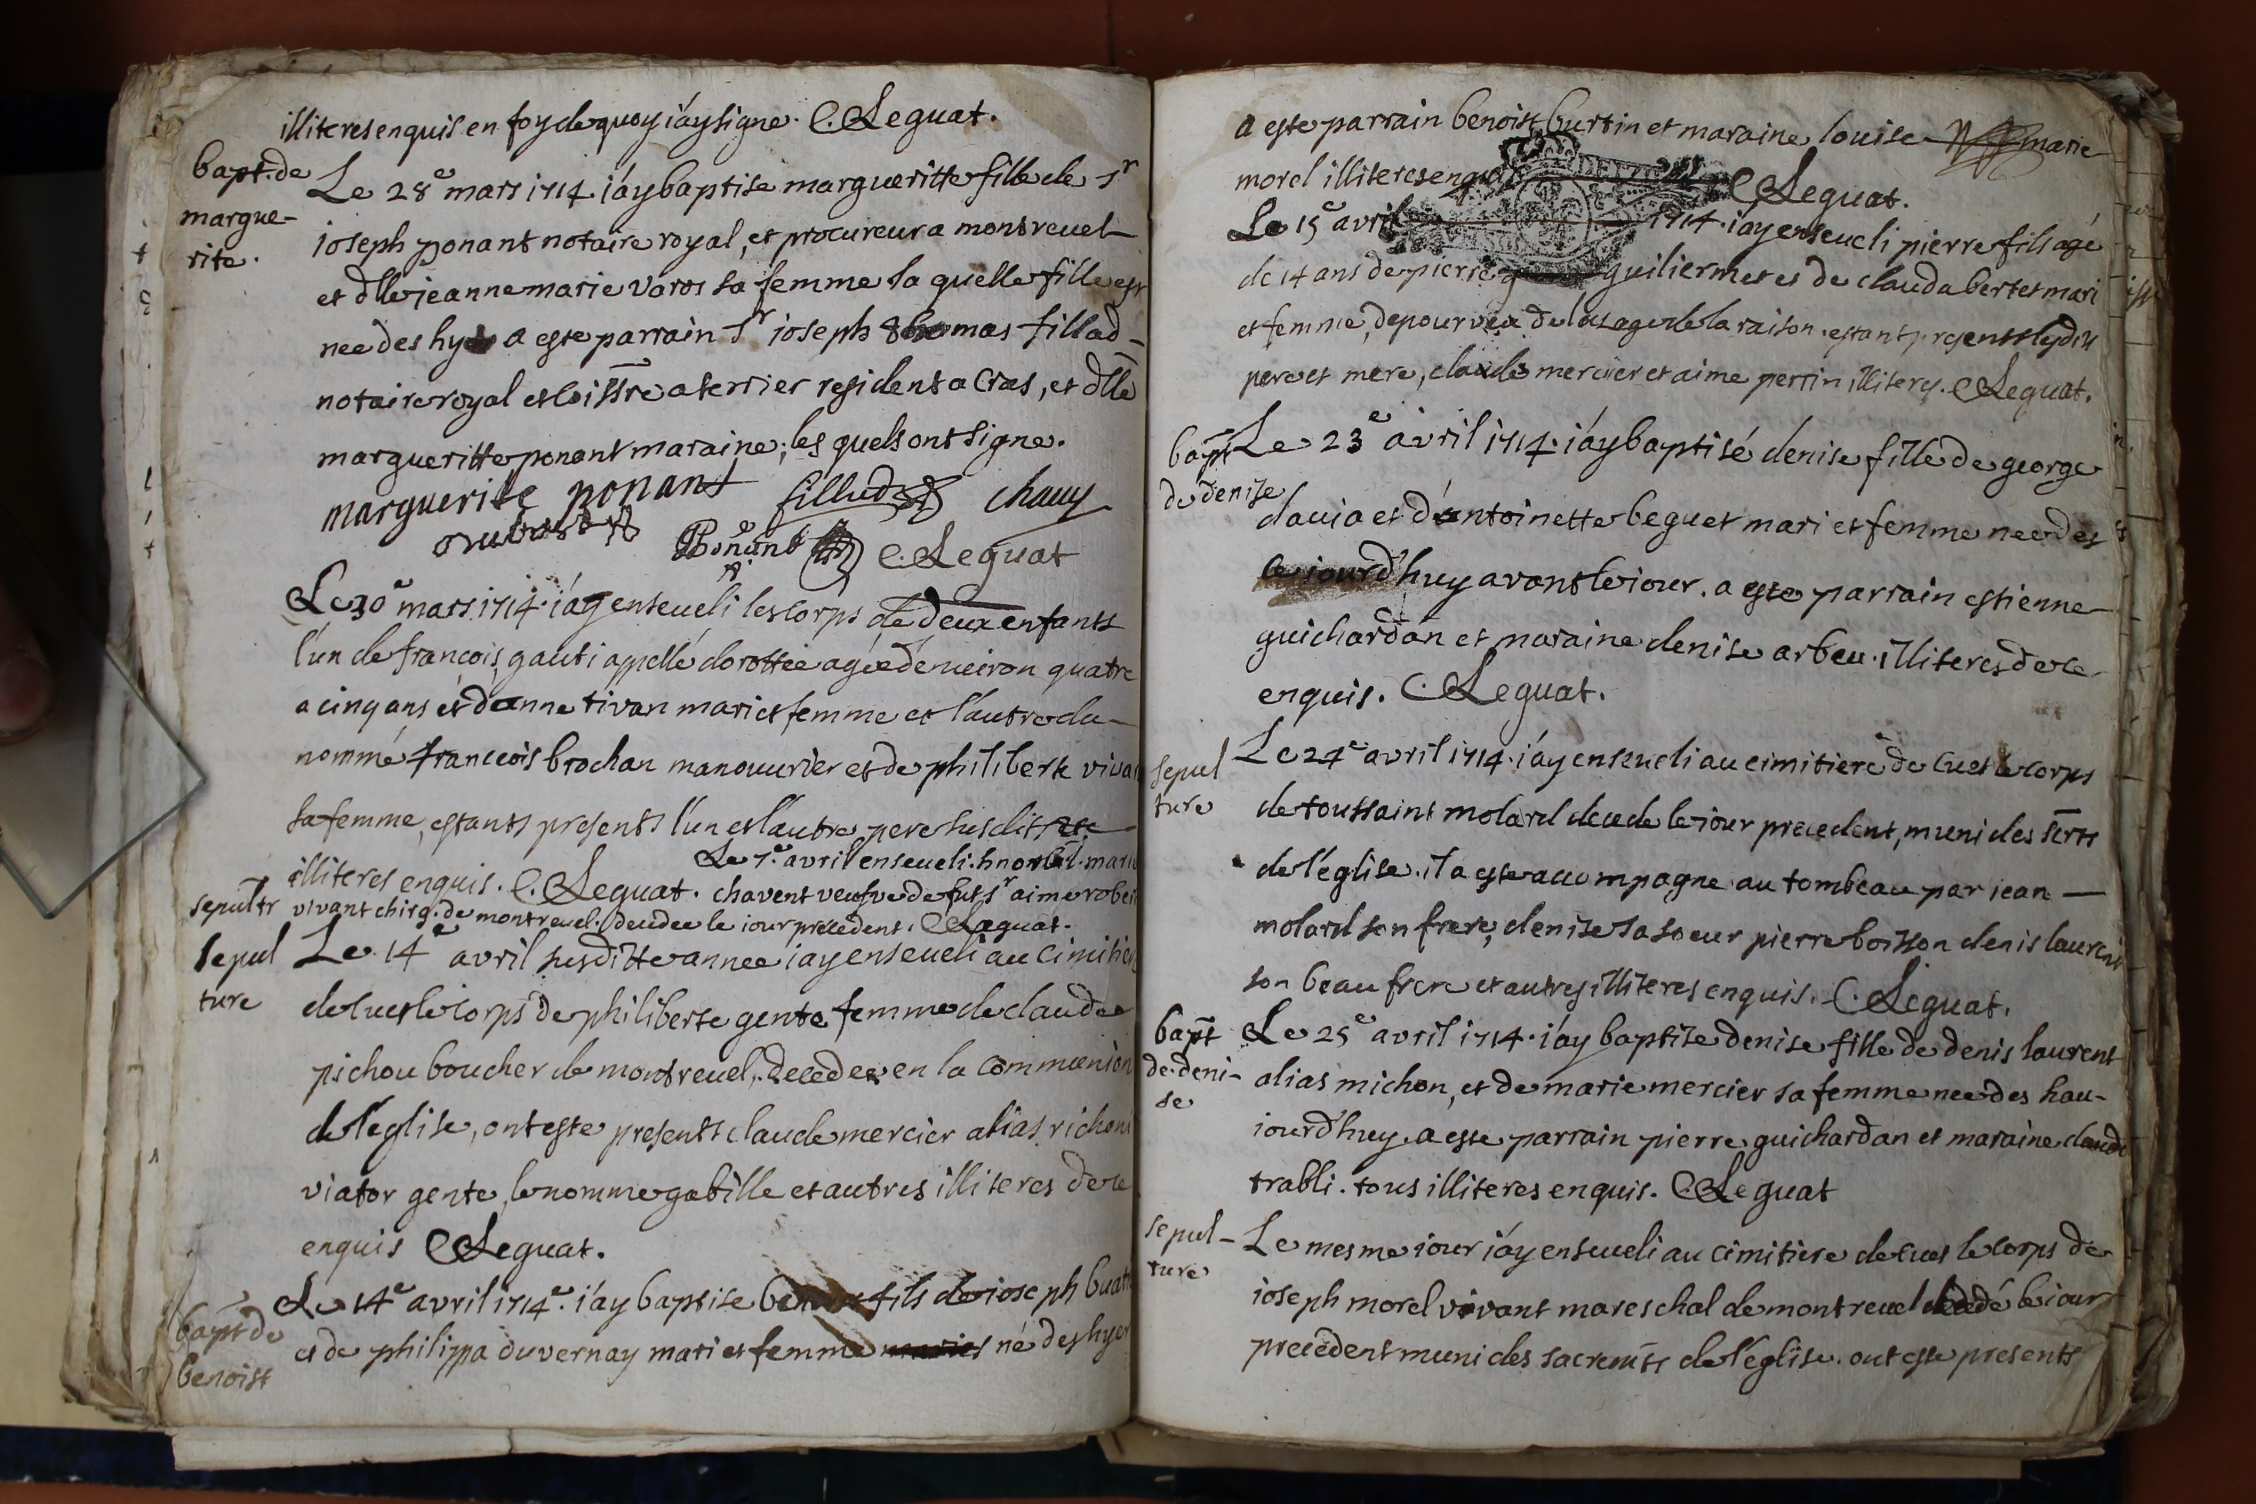 illiteres enquis en foy de quoy i'ay signe. C. Leguat.
bapt. de
margue-
rite.
Le 28e mars 1714. i'ay baptise margueritte fille de sr
ioseph ponant notaire royal, et procureur a montrevel
et dlle jeanne marie varos sa femme la quelle fille est
nee des hyer a este parrain sr ioseph thomas fillad
notaire royal et coissre a terrier resident a Cras, et dlle
margueritte ponant maraine; les quels ont signe.
marguerite ponant fillud chauy
Ponant C. Leguat
Le 30e mars 1714. i'ay enseveli les corps de deux enfants
l'un de francois gauti appellé dorottée agée d'environ quatre
a cinq ans et d'anne tivan mari et femme et l'autre du
nommé francois brochan manouvrier et de philiberte vivan
sa femme, estants presents l'un et l'autre pere susdits
illiteres enquis. C. Leguat.
sepultr
Le 7e avril enseveli. hnorble. marie
chavent veufve de fut sr aime robert
vivant chirg. de montrevel. decedee le iour precedent. C Leguat.
sepul
ture
Le 14e avril susditte annee i'ay enseveli au cimitiere
de cuet le corps de philiberte gente femme de claude
pichou boucher de montrevel, decedee en la communion
de l'eglise, ont este presents claude mercier alias richon
viator gente, le nomme gabille et autres illiteres de ce
enquis C Leguat.
bapt de
benoist
Le 14e avril 1714e. i'ay baptise benoist fils de ioseph buat
et de philippa duvernay mari et femme né des hyer
a este parrain benoist burtin et maraine louise marie
morel illiteres enquis C Leguat.
Le 15e avril 1714. i'ay enseveli pierre fils agé
de 14 ans de pierre guiliermet et de clauda bertet mari
et femme, depourveu de l'usage de la raison. estant presents lesdits
pere et mere, claude mercier et aime perrin illiteres. C Leguat.
bapt
de denise
Le 23e avril 1714. i'ay baptisé denise fille de george
davia et d'antoinette beguet mari et femme nee des
ce iourd'huy avant le iour. a este parrain estienne
guichardan et maraine denise arbeu. illiteres de ce
enquis. C. Leguat.
sepul
ture
Le 24e avril 1714. i'ay enseveli au cimitiere de cuet le corps
de toussaint molard decede le iour precedent, muni des scrts
de l'église. il a este accompagne au tombeau par jean
molard son frere, denise sa soeur pierre boisson denis laurent
son beau frere et autres illiteres enquis. C. Leguat.
bapt
de deni-
se
Le 25e avril 1714. i'ay baptise denise fille de denis laurent
alias michon, et de marie mercier sa femme nee des hau-
iourd'huy. a este parrain pierre guichardan et maraine claude
trabli. tous illiteres enquis. C Leguat
sepul-
ture
Le mesme iour i'ay enseveli au cimitiere de cuet le corps de
ioseph morel vivant mareschal de montrevel decedé le iour
precedent muni des sacremts de l'église. ont este presents